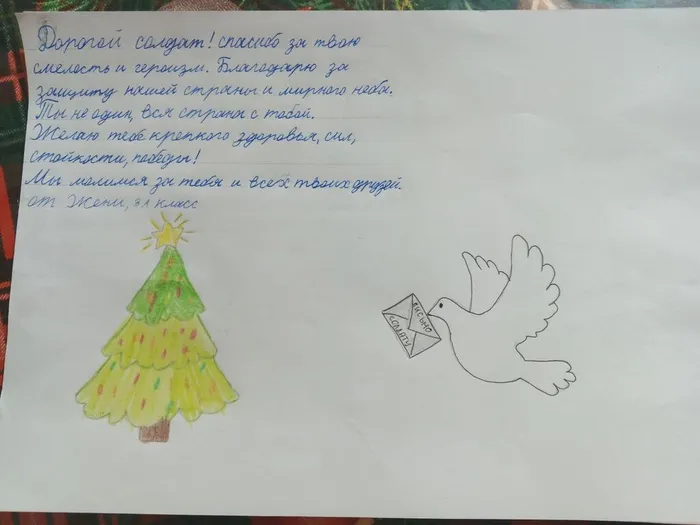 Дорогой солдат! спасибо за твою
смелость и героизм. Благодарю за
защиту нашей страны и мирного неба.
Ты не один, вся страна с тобой.
Желаю тебе крепкого здоровья, сил,
стойкости, победы!
Мы молимся за тебя и всех твоих друзей.
от Жени, 31 класс
письмо
солдату